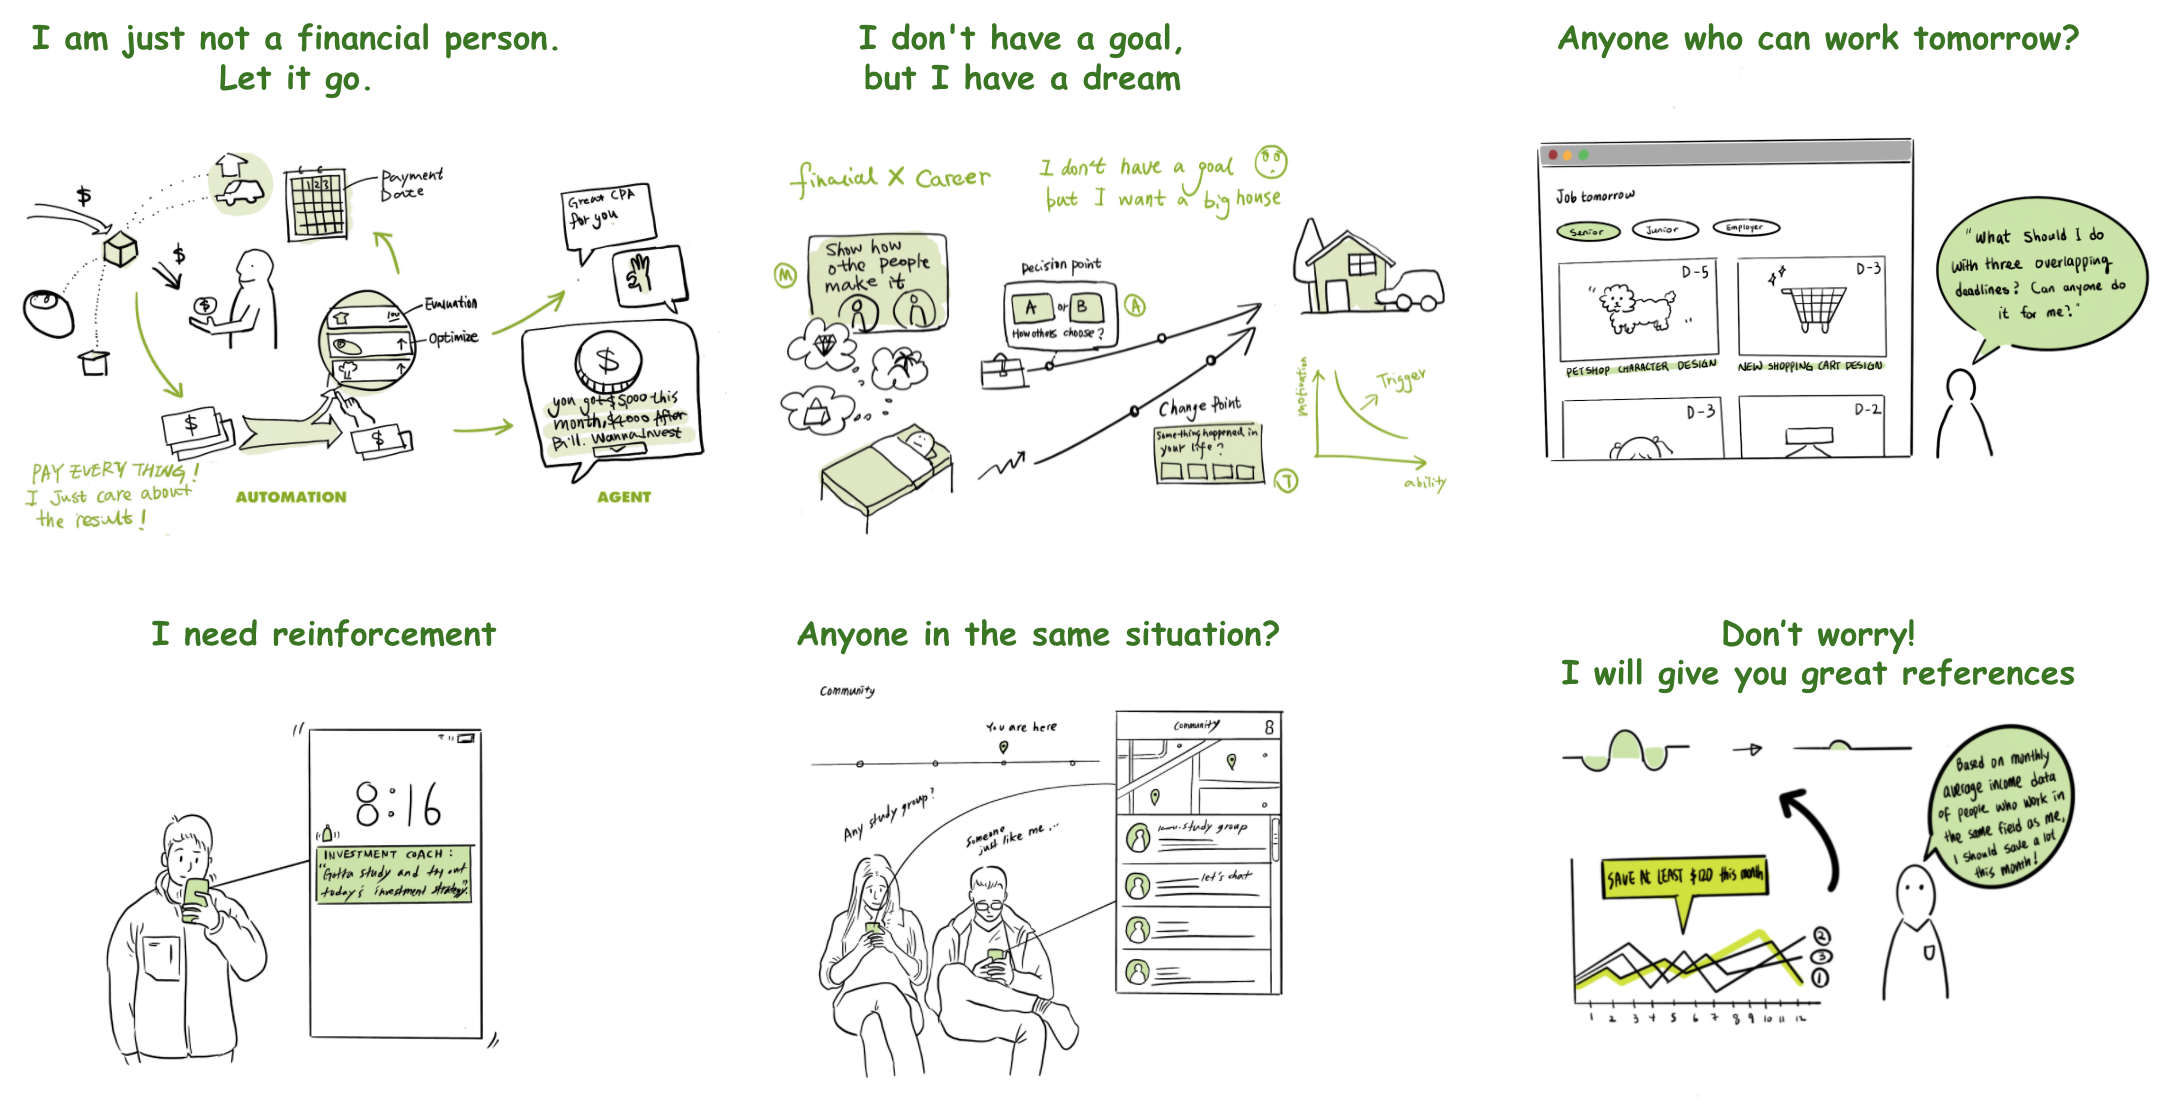 I am just not a financial person.
Let it go.
$
$
$
1 2 3
Payment
Date
Evaluation
Optimize
low
$
$
PAY EVERY THING!
I Just care about
the results!
AUTOMATION
Great CPA
for you
$
you got $5,000 this
month, $4,000 After
Bill. Wanna Invest
AGENT
I don't have a goal,
but I have a dream
finacial X Career
I don't have a goal
but I want a big house
M
Show how
othe people
make it
Decision point
A or B
How others choose?
A
Change Point
Something happened in
your life?
T
motivation
Trigger
ability
Anyone who can work tomorrow?
Job tomorrow
Senior
Junior
Employer
D-5
D-3
PETSHOP CHARACTER DESIGN
NEW SHOPPING CART DESIGN
D-3
D-2
"What should I do
with three overlapping
deadlines? Can anyone do
it for me?"
I need reinforcement
8:16
INVESTMENT COACH:
"Gotta study and try out
today's investment strategy."
Anyone in the same situation?
Community
You are here
Any study group?
Someone
just like me...
Community
study group
let's chat
Don't worry!
I will give you great references
Based on monthly
average income data
of people who work in
the same field as me,
I should save a lot
this month!
SAVE At LEAST $120 this month
2
3
1
1 2 3 4 5 6 7 8 9 10 11 12